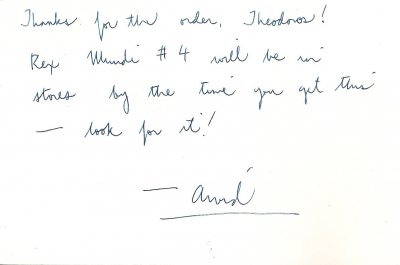 Thanks for the order, Theodoros!
Rex Mundi #4 will be in
stores by the time you get this
— look for it!
— Arvid